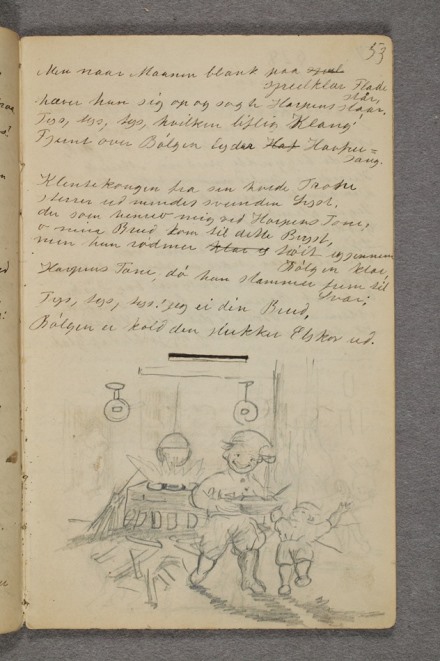 53
Men naar Maanen blank paa
speilklar Flade
staar,
hæver hun sig op og sagte Harpens slaar,
Tys, tys, tys, hvilken liflig Klang!
Fjernt over Bølgen lyder Harpe-
sang.
Klintekongen fra sin hvide
stirrer ved mindet
du som henrev mig ved Harpens Tone,
o min Brud kom til dette Bryst,
men hun rødmer tæt igjennem
Bølgen klar,
Harpens Tone, da hun stammer frem til
Svar;
Tys, tys, tys! jeg ei din Brud,
Bølgen er kold den slukker Elskov ud.